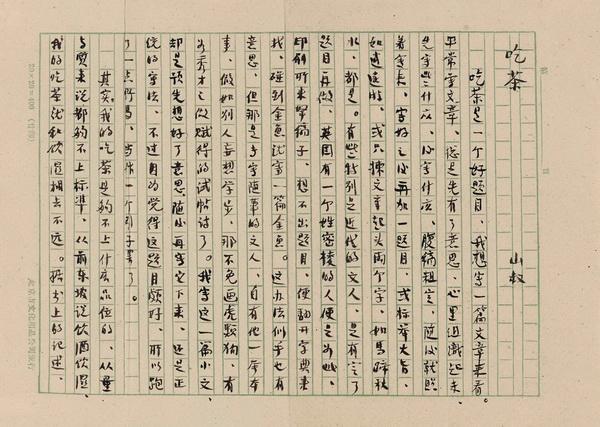 吃茶
山叔
吃茶是一个好题目,我想写一篇文章来看。
平常写文章,总是先有了意思,心里组织起来,
先写些什么,后写什么,腹稿粗定,随后就照
着写去,写好之后再加一题目,或标举大旨,
如逍遥游,或只拣文章起头两个字,如马蹄秋
水,都是。有些特别是近代的文人,是有定了
题目再做,英国有一个姓密棱的人便是如此,
印刷所来拿稿子,想不出题目,便翻开字典来
找,碰到金鱼就写一篇金鱼。这办法似乎也有
意思,但那是专写随笔的文人,自有他一套本
事,假如别人妄想学步,那不免画虎类狗,有
如秀才之做赋得的试帖诗了。我写这一篇小文
却是预先想好了意思,随后再写它下来,还是正
统的写法,不过自为觉得这题目颇好,所以跑
了一点野马,当作一个引子罢了。
其实,我的吃茶是够不上什么品位的,从量
与质来说都够不上标准,从前东坡说饮酒饮湿,
我的吃茶就和饮湿相去不远。据书上的记述,
20×20=400
北京市文化用品公司发行